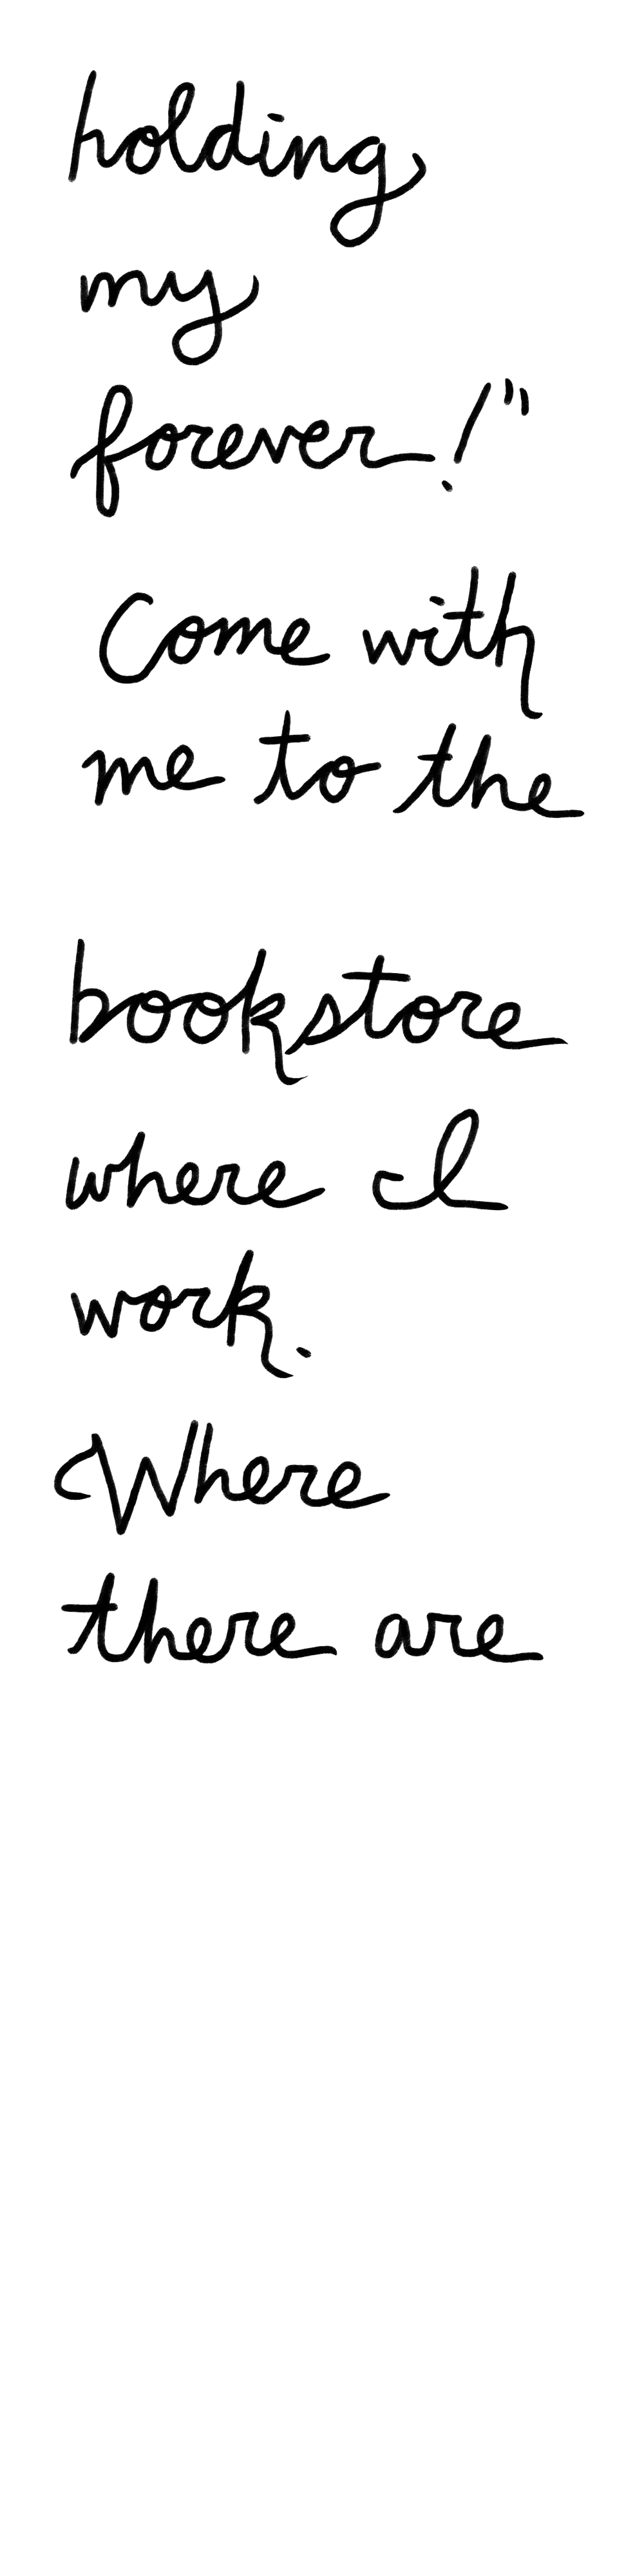 holding
my
forever!"
Come with
me to the
bookstore
where I
work.
Where
there are